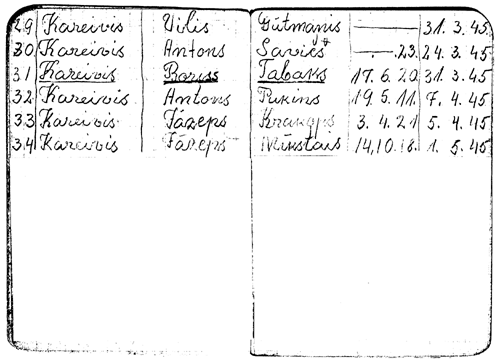 29 Kareivis Vilis Gūtmanis — 31. 3. 45.
30 Kareivis Antons Savičs —.—.23. 24. 3. 45
31 Kareivis Boriss Tabaks 17. 6. 20 31. 3. 45
32 Kareivis Antons Pukins 19. 5. 11. 7. 4. 45
33 Kareivis Jāzeps 3. 4. 21 5. 4. 45
34 Kareivis Jāzeps Mīkstais 14.10.18. 1. 5. 45